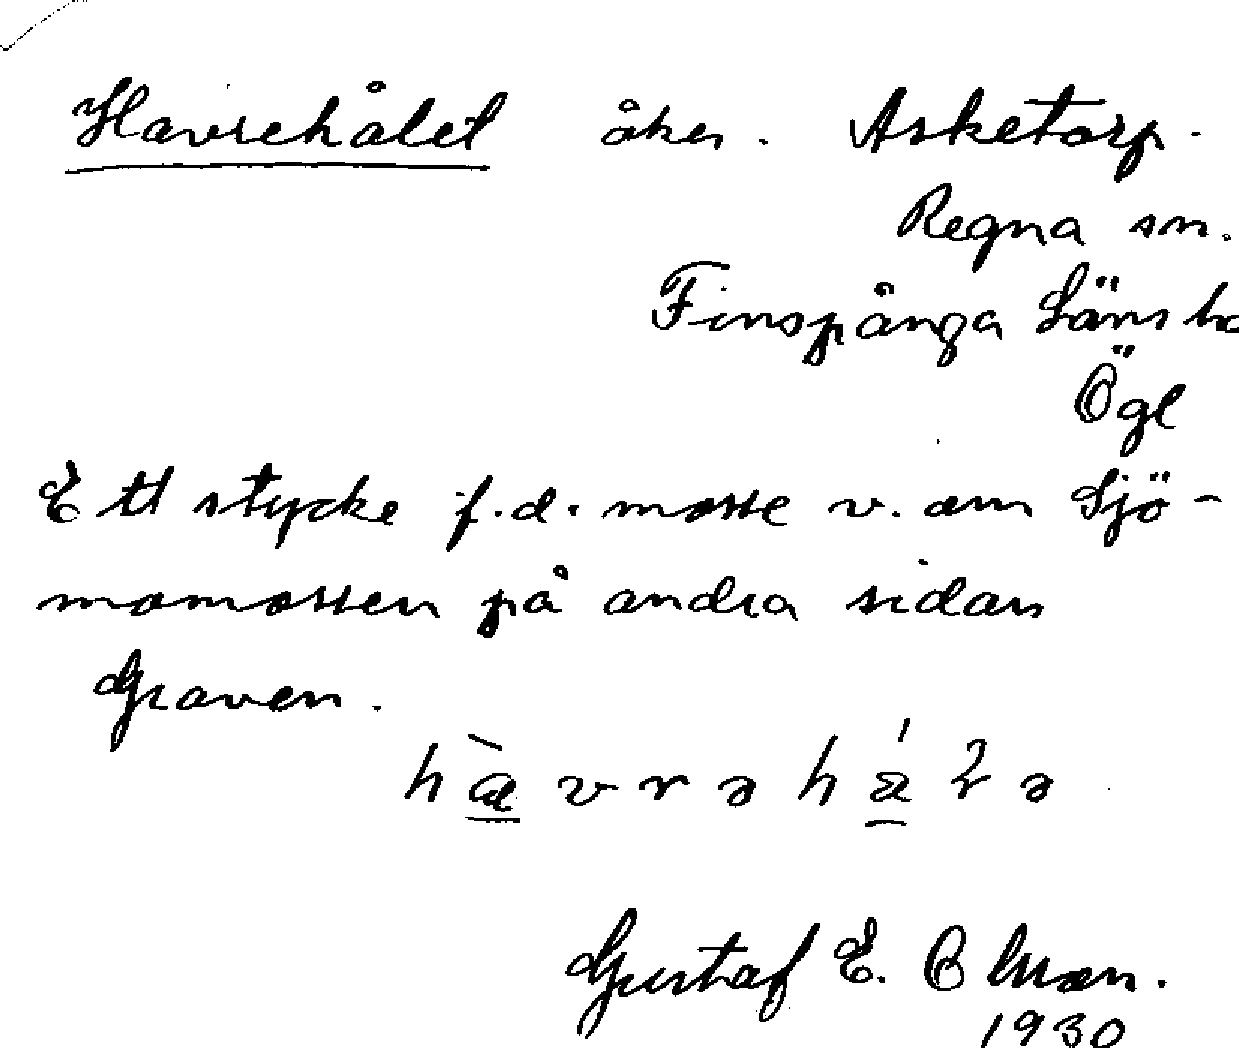 Havrehålet åker. Asketorp.
Regna sn.
Finspånga Läns h
Ögl
Ett stycke f.d. mosse v. om Sjö-
momossen på andra sidan
Graven.
Gustaf E. Olsson.
1930